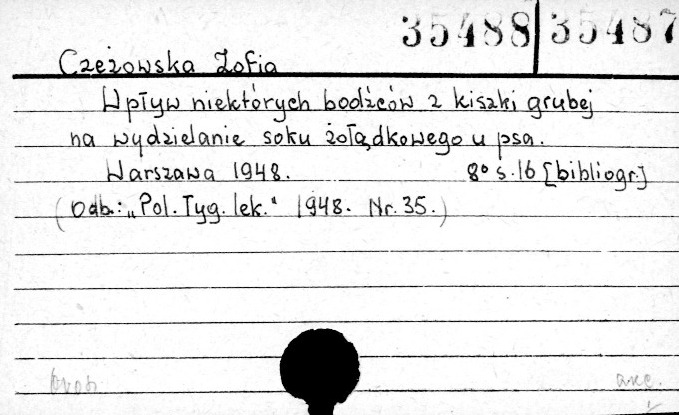 35488 35487
Czeżowska Zofia
Wpływ niektórych bodźców z kiszki grubej
na wydzielanie soku żołądkowego u psa.
Warszawa 1948. 8° s. 16 [bibliogr.]
(Odb.: „Pol. Tyg. lek." 1948. Nr. 35.)